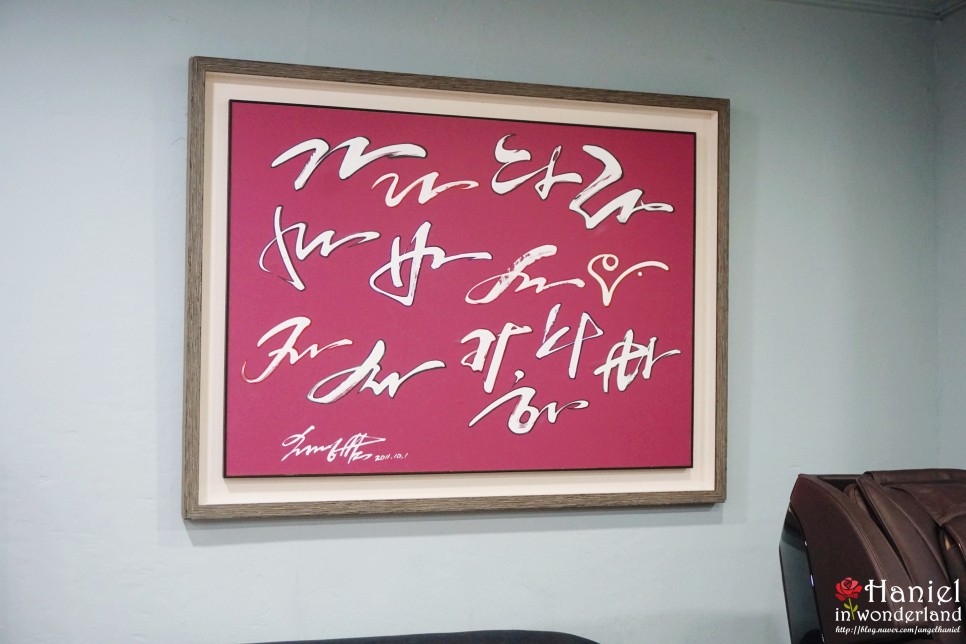 가 나 다 라
마 바 사 아
자 차 카 타 파
하
2011.10.1
Haniel
in wonderland
http://blog.naver.com/angelhaniel